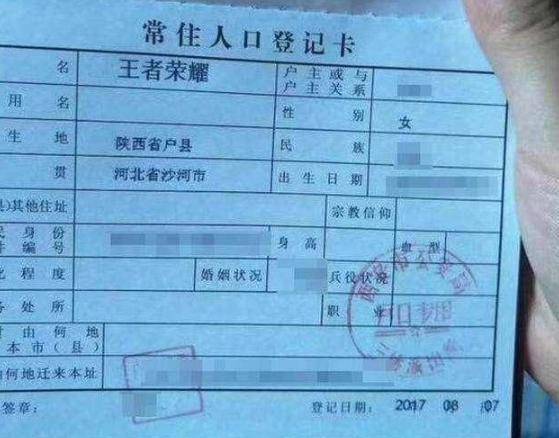 常住人口登记卡
名 王者荣耀 户主或与
户主关系
用名 性别 女
生地 陕西省户县 民族
贯 河北省沙河市 出生日期
县)其他住址 宗教信仰
民身份
件编号 身高 血型
化程度 婚姻状况 兵役状况
务处所 职业
由何地
本市(县)
何地迁来本址
签章: 登记日期: 2017 年 08 月 07